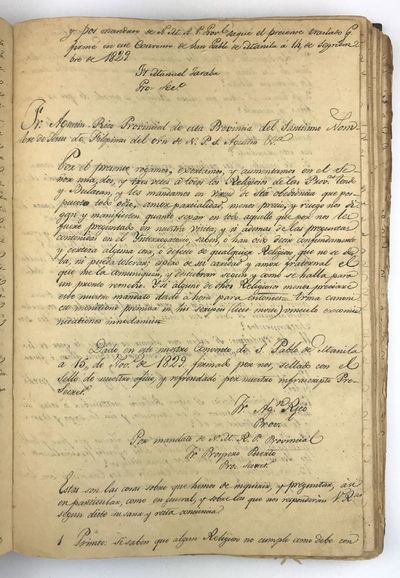 y por mandato de N. M. R. P. Provl. saqué el presente traslado q.
firmé en este Convento de San Pablo de Manila a 14 de Septiem
bre de 1829
Fr. Manuel
Pro Seco.
Fr. Agustin Rico Provincial de esta Provincia del Santisimo Nom
bre de Jesus de Filipinas del Orn de N. P. S. Agustin &a.
Por el presente rogamos, exortamos, y
una, dos, y tres veces a todos los Religiosos de las Provs.
y Bulacan, y les mandamos en virtud de Sta. obediencia que pos-
puesto todo odio, amor, parcialidad, menos precio, y riesgo nos di-
gan y manifiesten quanto sepan en todo aquello que por nos les
fuere preguntado en nuestra visita; y si ademas de las preguntas
contenidas en el Interrogatorio, saben, o han oido decir
y certeza alguna cosa, o defecto de qualquiera Religioso que no se de-
ba, ni pueda tolerar, espero de su caridad y amor fraternal el
que me la comuniquen, y descubran segun y como se halla para
un pronto remedio. Y si alguno de dhos Religiosos menos preciare
este nuestro mandato desde ahora para entonces
monitione premissa in his scriptis (licet inviti) vinculo excomu
nicationis innodamus
Dada en este nuestro Convento de S. Pablo de Manila
a 13 de Nov. de 1829 firmada por nos, sellada con el
sello de nuestro oficio, y refrendada por nuestro infrascripto Pro-
Secret.
Fr. Agn. Rico
Provl.
Por mandato de N. M. R. P. Provincial
Fr. Prospero
Pro. Secret.
Estas son las cosas sobre que hemos de inquirir, y preguntar, asi
en particular, como en general, y sobre las que nos responderan V. Rs.
segun dicte su sana y recta conciencia
1 Primte. si saben que algun Religioso no cumple como debe con